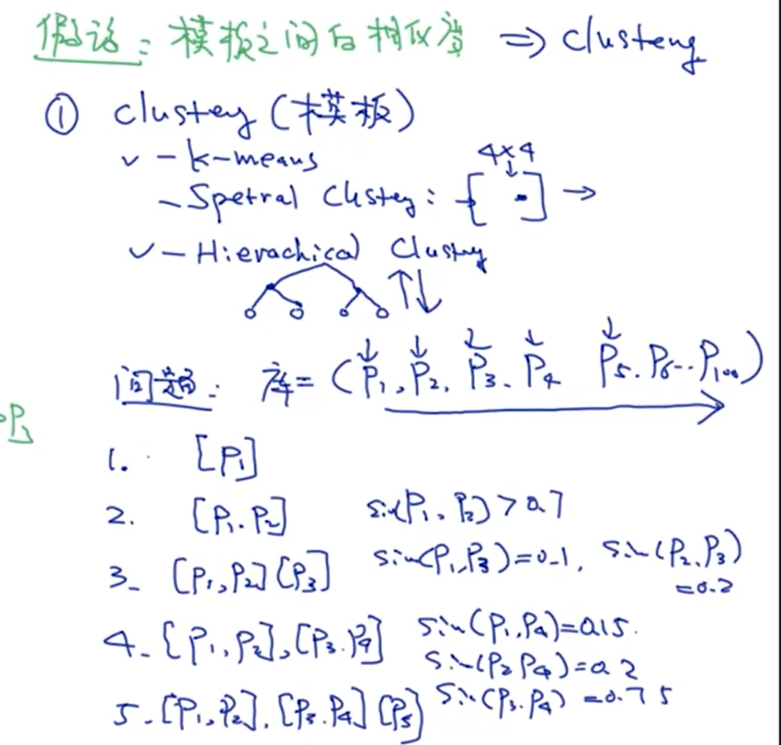 假设: 模板之间的相似度 ⇒ clusteng
① clustey (模板)
✓ - k-means
4×4
- Spetral Clstey: [ ] →
✓ - Hierachical Clustey
问题: 库= (P1, P2, P3, P4 P5. P6.. P100)
1. [P1]
2. [P1. P2] sim(P1, P2) > 0.7
3. [P1, P2] [P3] sim(P1, P3)=0.1, sim(P2, P3)
=0.2
4. [P1, P2], [P3. P4] sim(P1, P4)=0.15.
sim(P2 P4)=0.2
5. [P1, P2]. [P3. P4] [P5] sim(P3. P4) =0.75